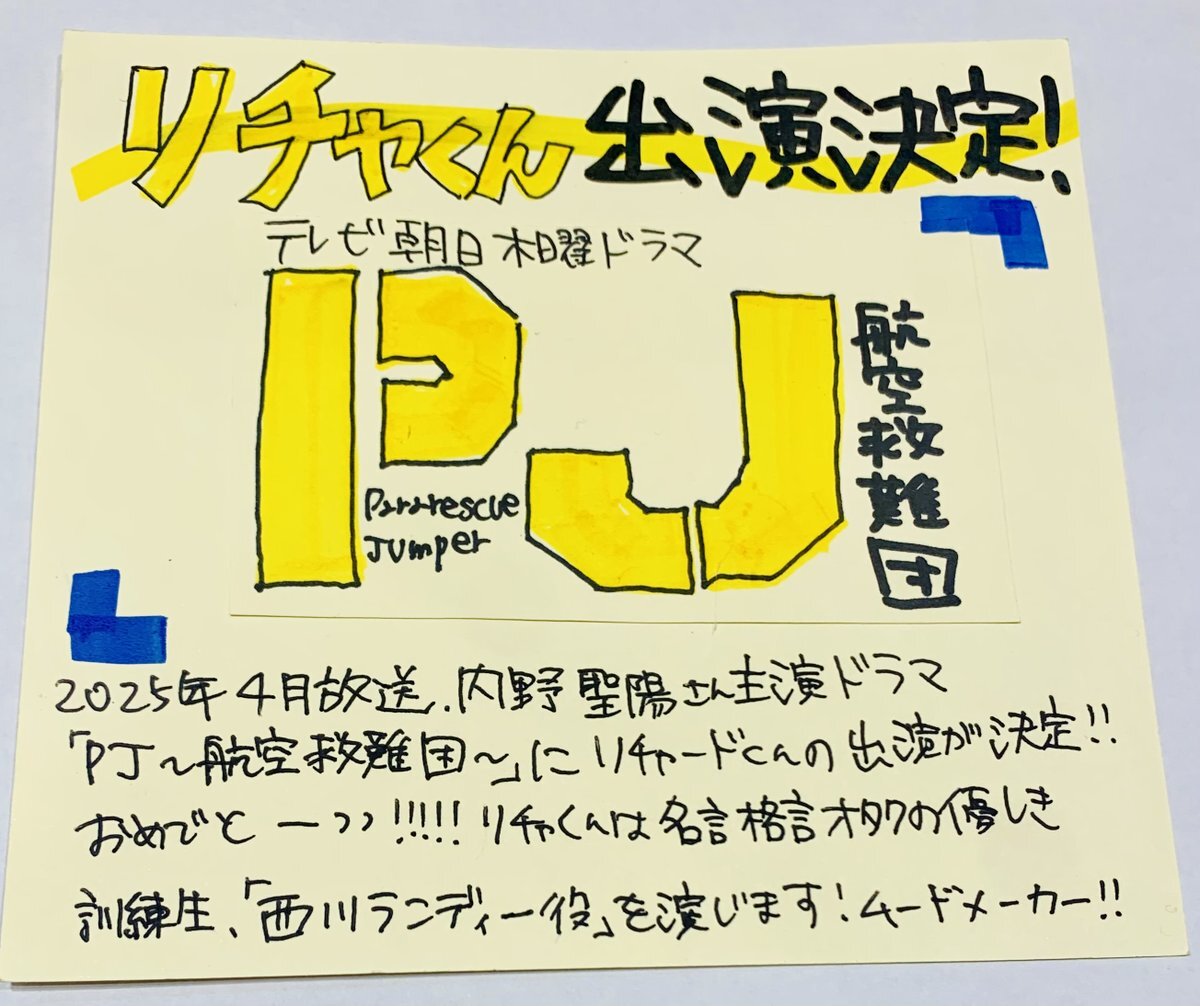 リチャくん 出演決定!
テレビ朝日 木曜ドラマ
PJ
航空救難団
Pararescue
Jumper
2025年4月放送、内野聖陽さん主演ドラマ
「PJ〜航空救難団〜」にリチャードくんの出演が決定!!
おめでとーッッ!!!!! リチャくんは名言格言オタクの優しき
訓練生、「西川ランディー役」を演じます!ムードメーカー!!